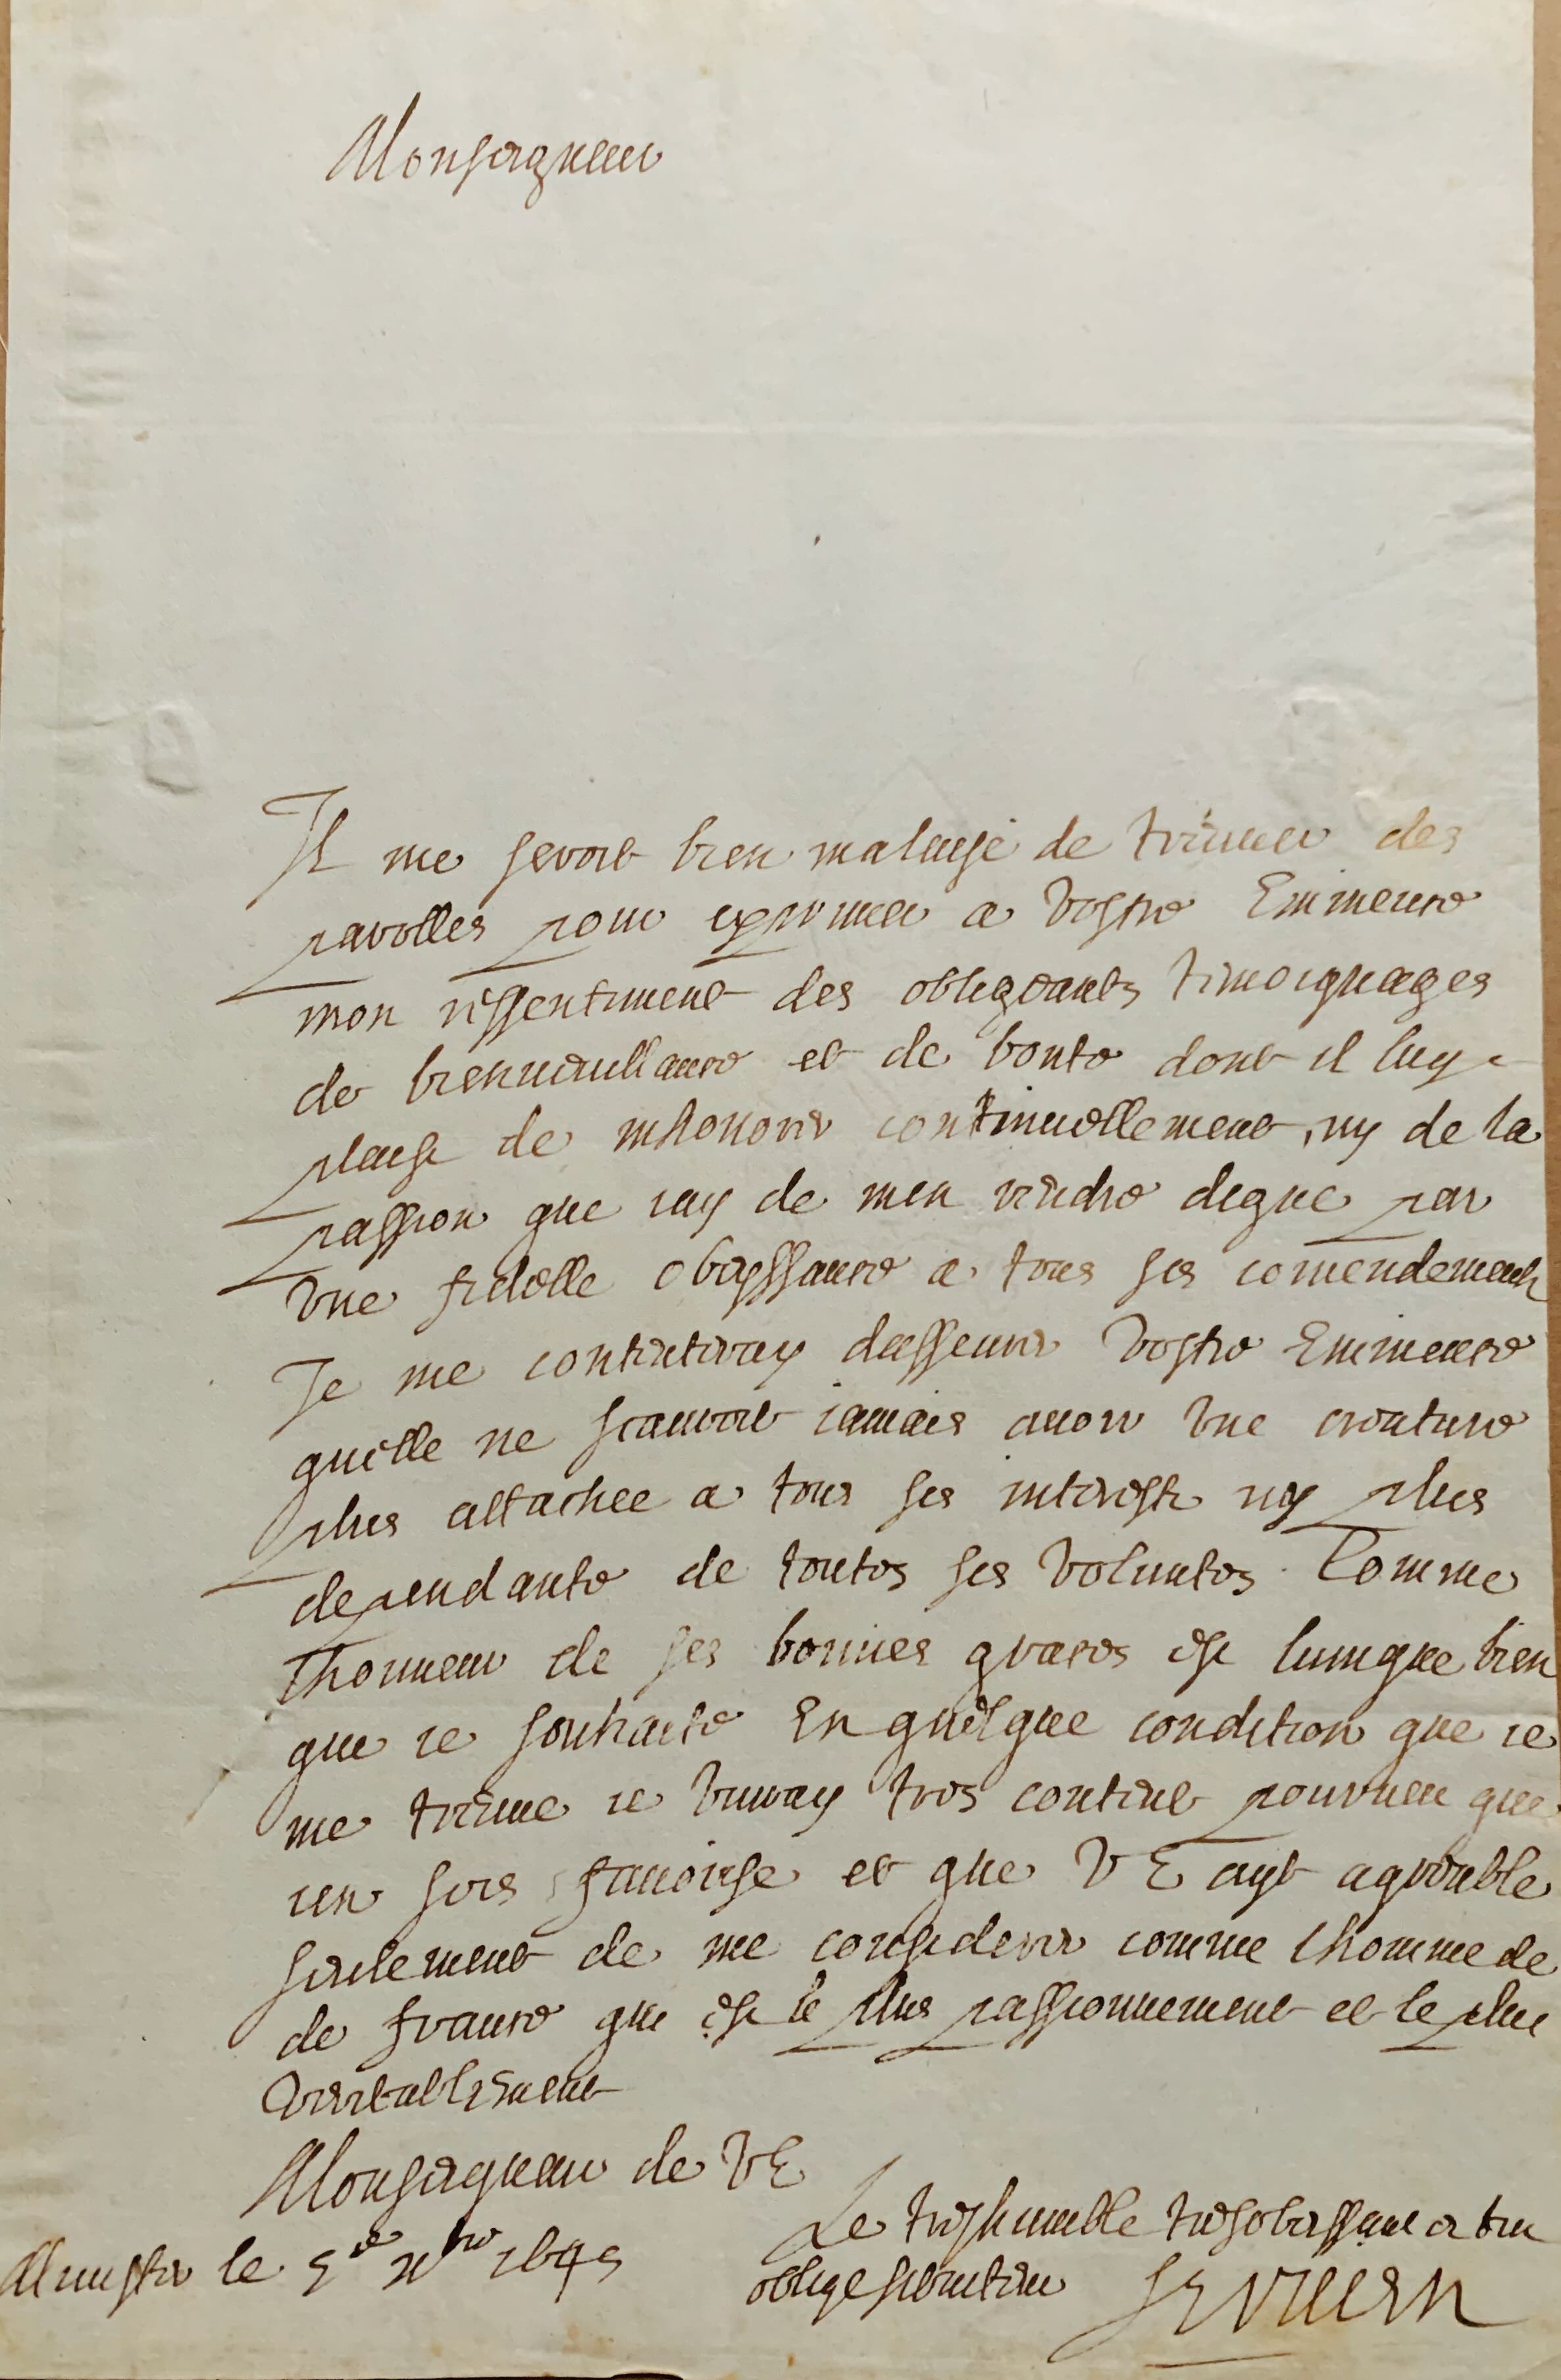 Monseigneur
Il me seroit bien malaysé de treuver des
parolles pour exprimer a Vostre Eminence
mon ressentiment des obligeants tesmoignages
de bienveuillance et de bonté dont il luy
plaist de mhonorer continuellement, ny de la
passion que iay de men rendre digne par
Une fidelle obeyssance a tous ses comendements
Je me contenteray dasseurer Vostre Eminence
quelle ne scauroit iamais avoir Une creature
plus attachee a tous ses interests ny plus
dependante de toutes ses Voluntes. Comme
lhonneur de ses bonnes graces est lunique bien
que ie souhaite En quelque condition que ie
me treuve ie Vivray tres content pourveu que
ien sois favorisé et que V E ayt agreable
seulement de me considerer comme lhomme de
de france qui est le plus passionnement et le plus
Veritablement
Monseigneur de V E
Le treshumble tresobeissant et tres
Munster le 5e xbre 1645
oblige serviteur Servien